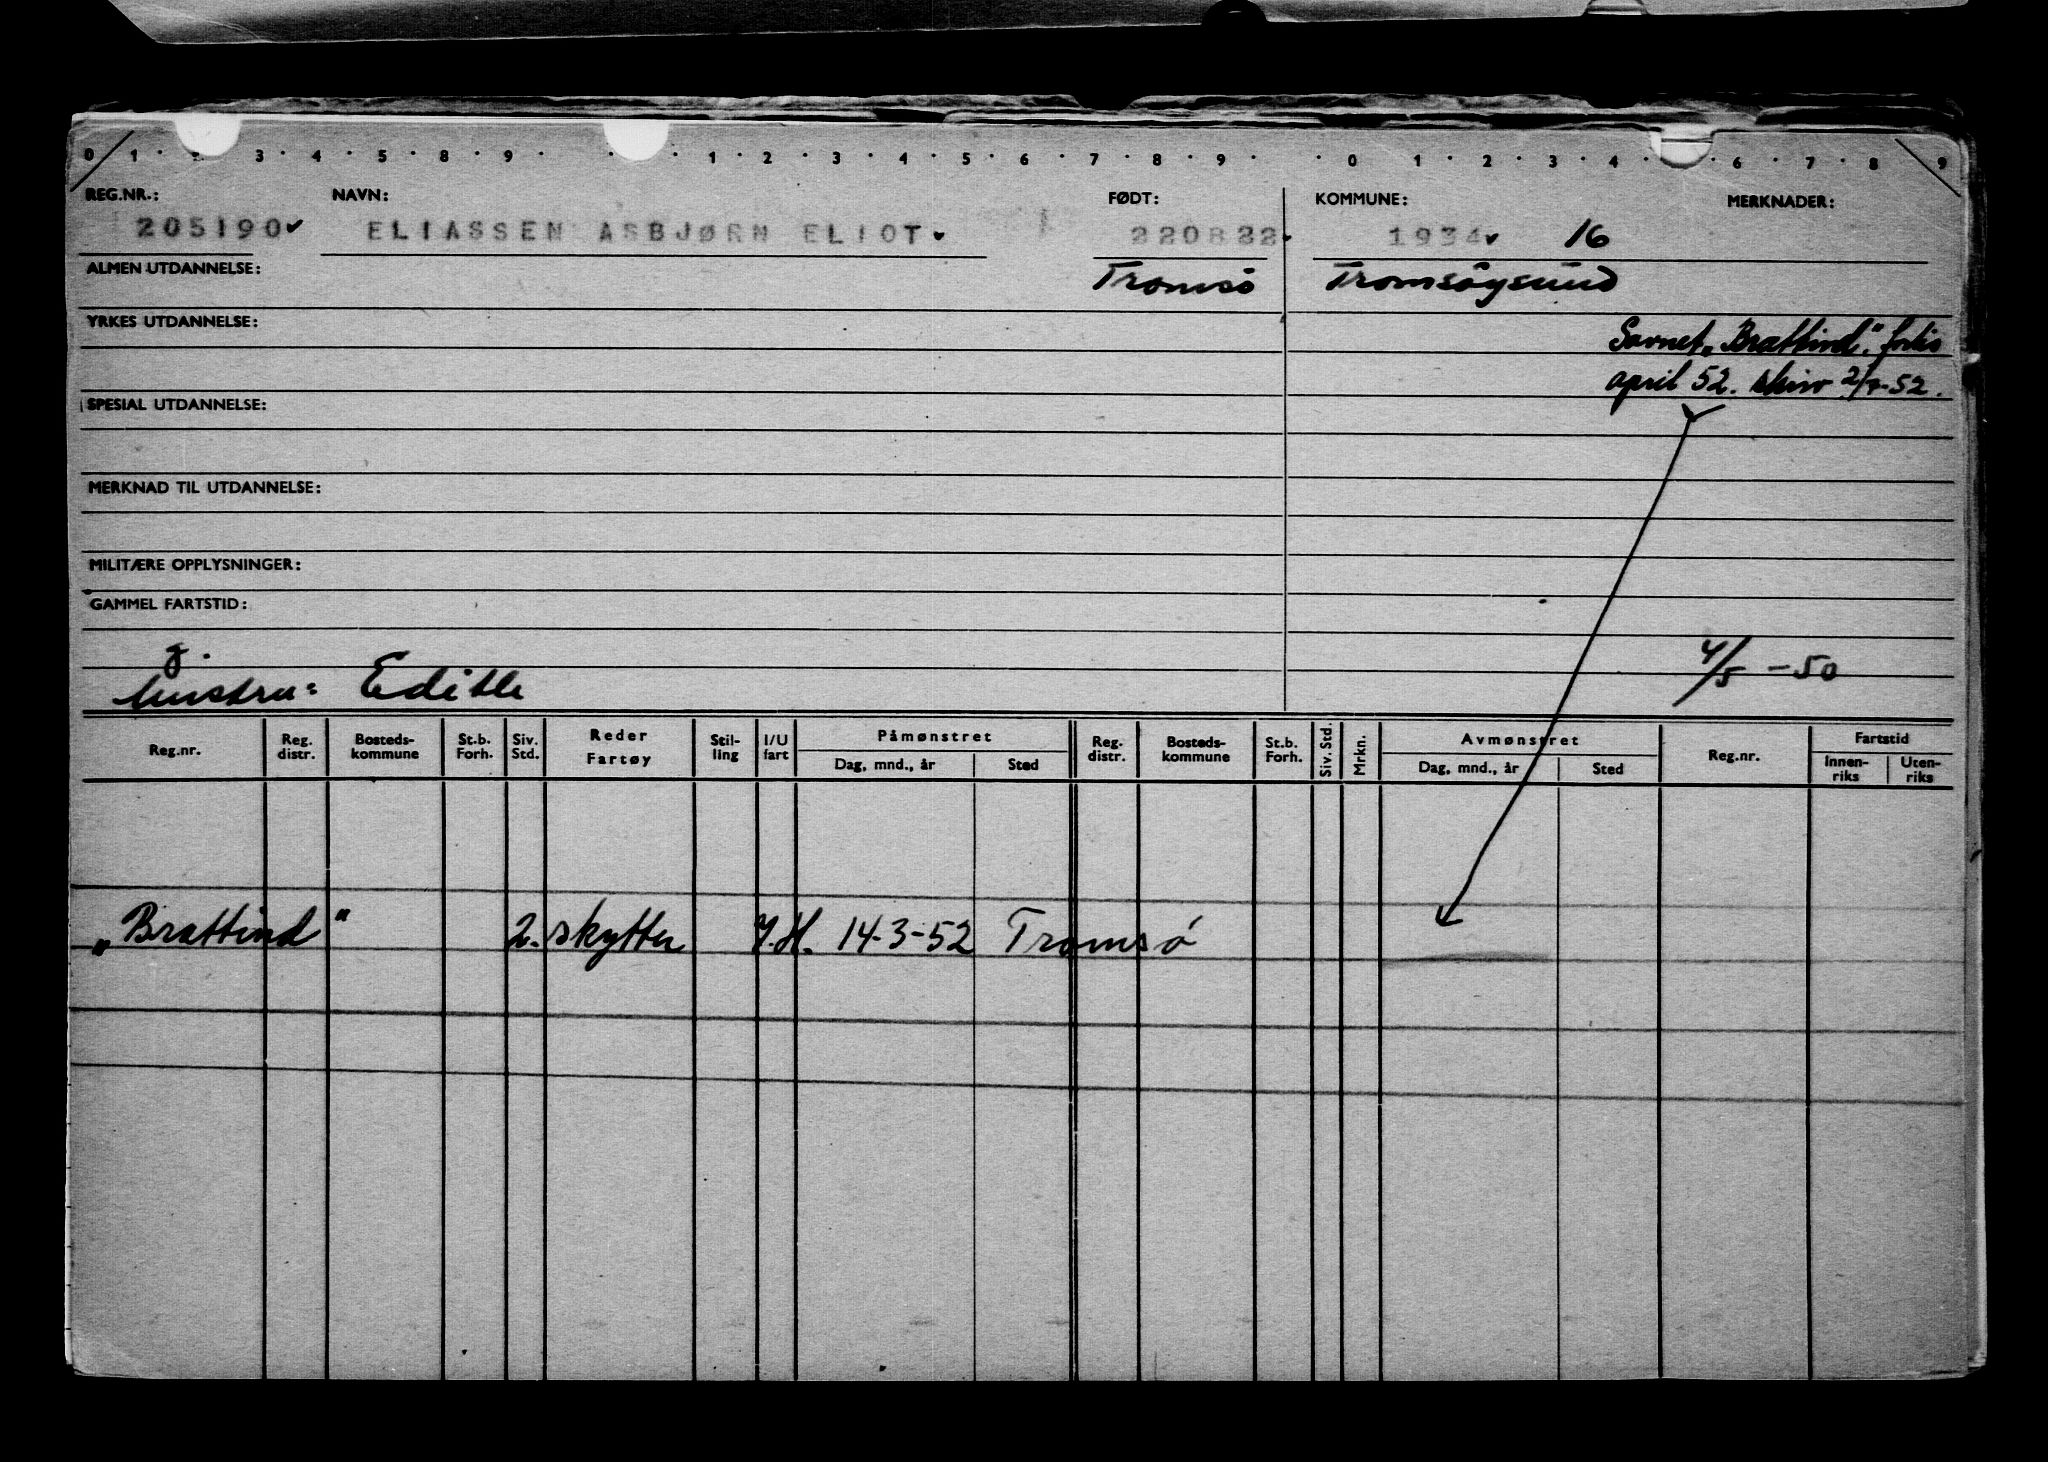 0 1 · 2 · 3 · 4 · 5 · 8 · 9 · · 1 · 2 · 3 · 4 · 5 · 6 · 7 · 8 · 9 · · 0 · 1 · 2 · 3 · 4 · · 6 · 7 · 8 · 9
REG.NR.: NAVN: FØDT: KOMMUNE: MERKNADER:
205190 ELIASSEN ASBJØRN ELIOT 220822 1934 16
ALMEN UTDANNELSE: Tromsö Tromsöysund
YRKES UTDANNELSE:
Savnet „Brattind". forlis
april 52. skriv 2/7-52.
SPESIAL UTDANNELSE:
MERKNAD TIL UTDANNELSE:
MILITÆRE OPPLYSNINGER:
GAMMEL FARTSTID:
g.
hustru: Edith 4/5 -50
Reg.nr. Reg. distr. Bosteds-kommune St.b. Forh. Siv. Std. Reder Fartøy Stil-ling I/U fart Påmønstret Dag, mnd., år Sted Reg. distr. Bosteds-kommune St.b. Forh. Siv. Std. Mrkn. Avmønstret Dag, mnd., år Sted Reg.nr. Fartstid Innen-riks Uten-riks
„Brattind" 2. skytter I.H. 14-3-52 Tromsø